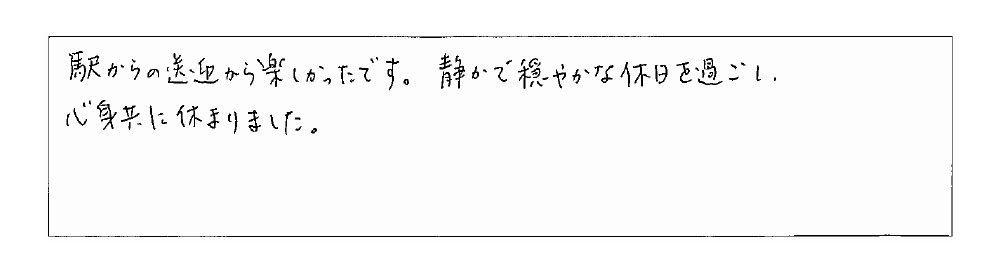 駅からの送迎から楽しかったです。静かで穏やかな休日を過ごし、
心身共に休まりました。